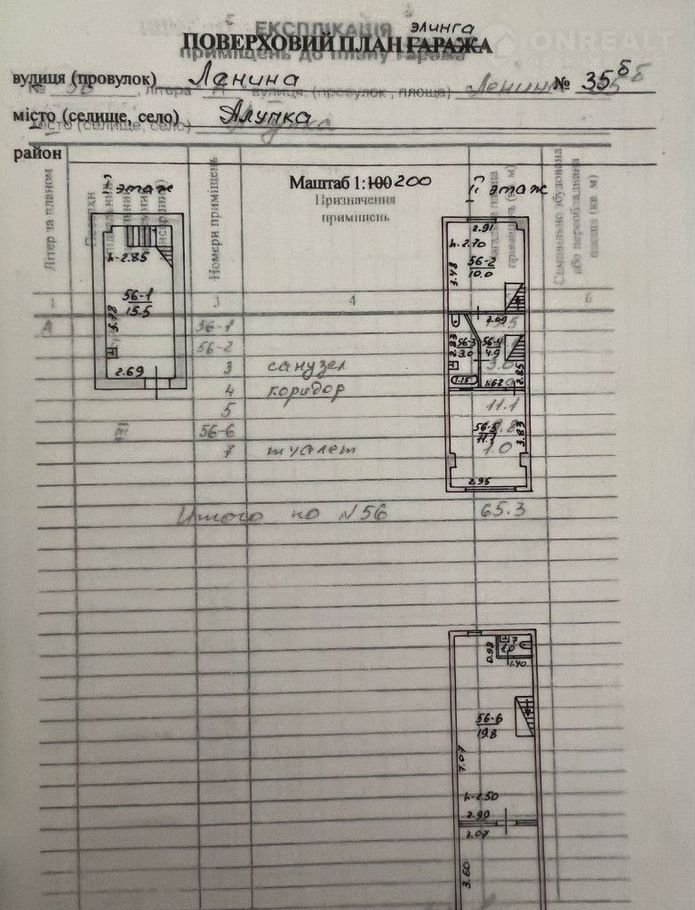 ЕКСПЛІКАЦІЯ
элинга
ПОВЕРХОВИЙ ПЛАН ГАРАЖА
приміщень до плану гаража
ONREALT
вулиця (провулок) Ленина № 35 б
місто (селище, село) Алупка
район
Маштаб 1:100 200
этаж
II этаж
Літер за планом
Номери приміщень
Призначення
приміщень
Самовільно збудована
або переобладнана
площа (кв. м)
1 3 4 6
56-1
56-2
3 санузел
4 коридор
5 11.1
III 56-6
7 туалет 1.0
Итого по N56 65.3
h-2.85
56-1
15.5
5.78
2.69
2.91
h-2.70
56-2
10.0
3.48
2.69
2.83
56-3
3.0
56-4
4.9
2.85
1.62
56-5
11.1
3.83
2.95
0.98
7
1.0
1.40
56-6
19.8
7.07
h-2.50
2.90
2.07
3.60